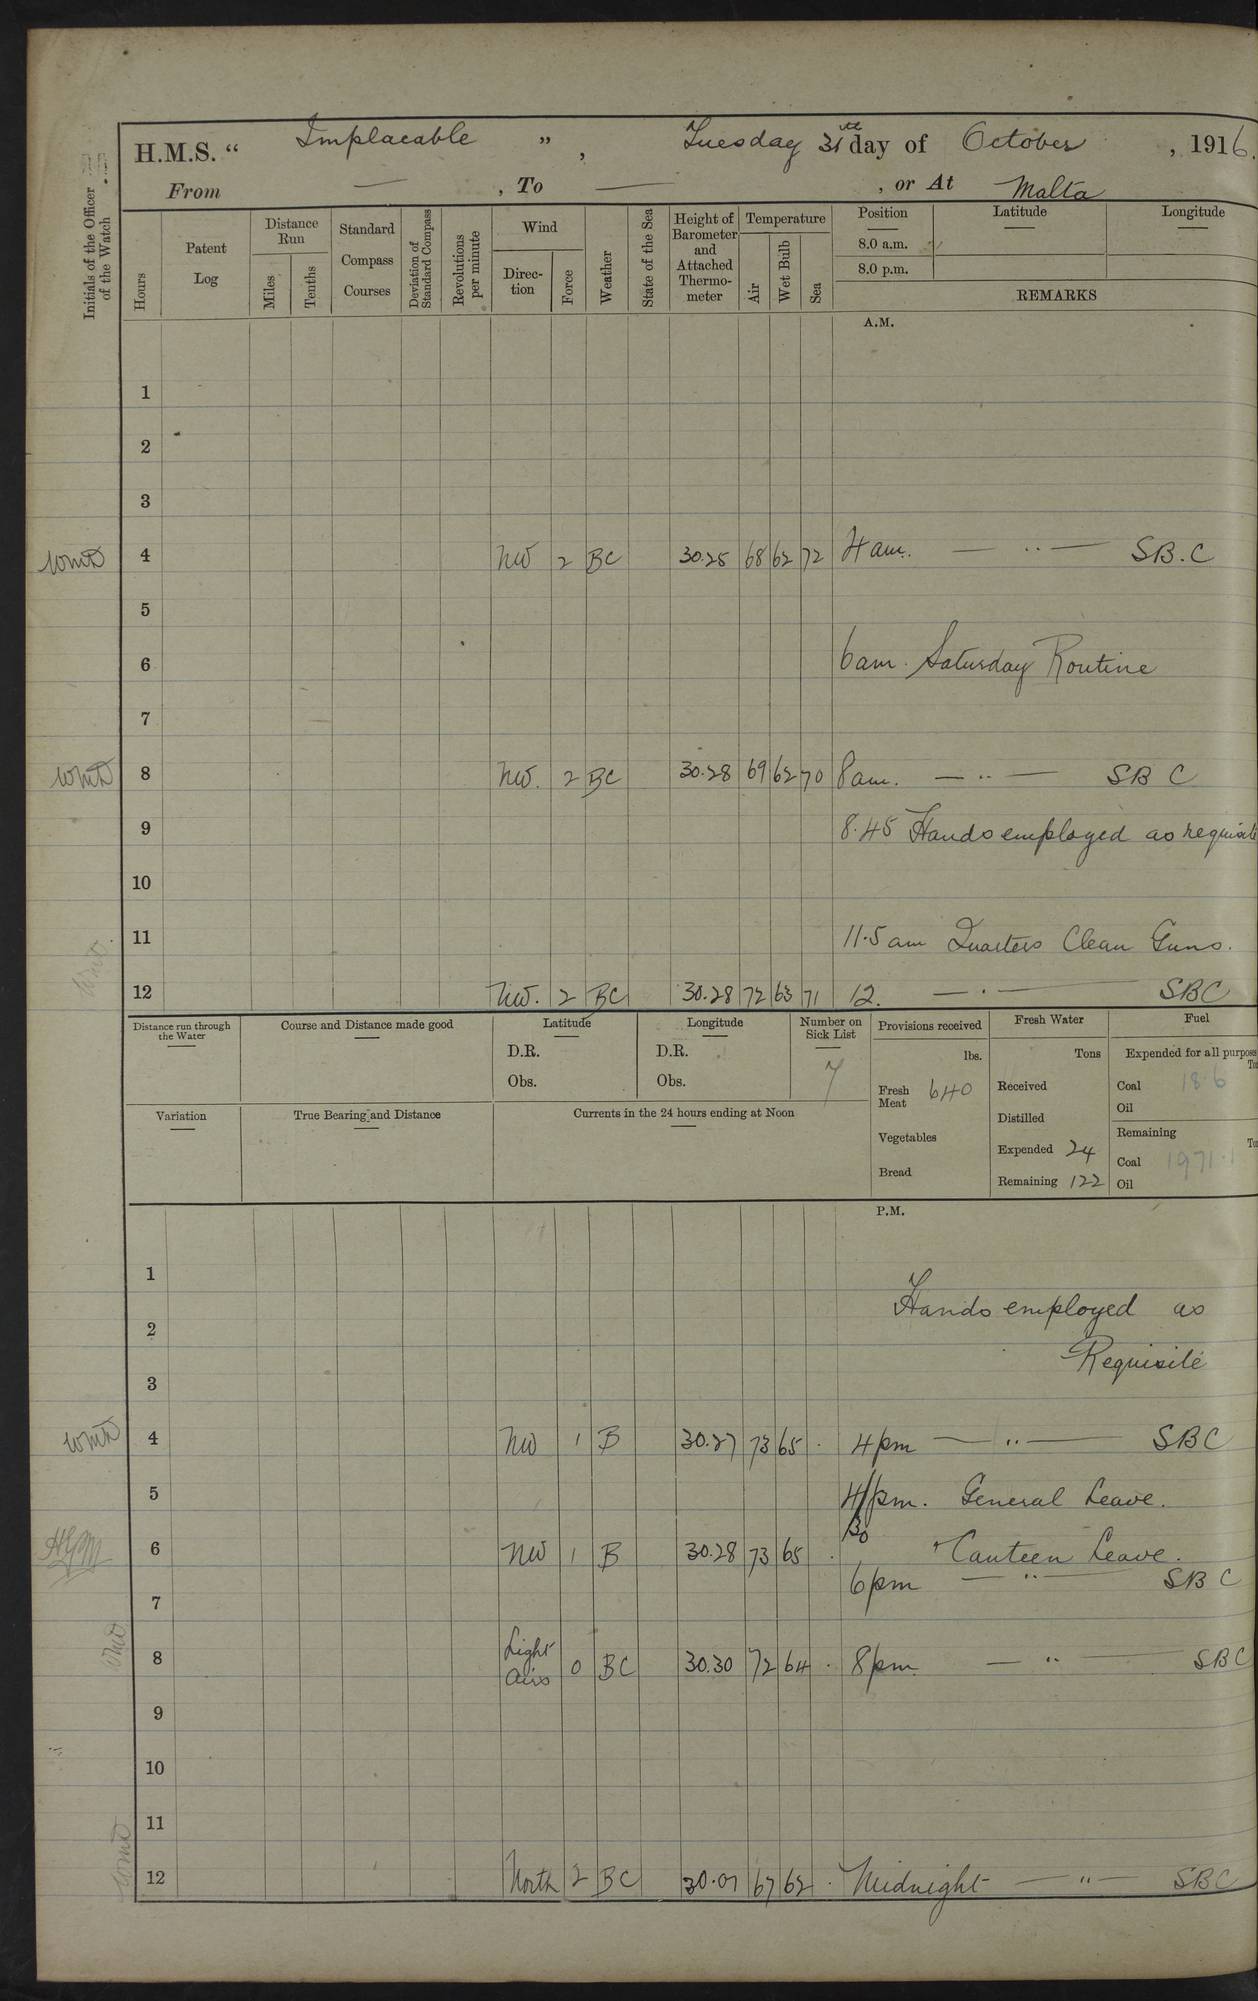 H.M.S. “ Implacable ” , Tuesday 31th day of October , 1916.
From — , To — , or At Malta
Initials of the Officer of the Watch
Hours
Patent Log
Distance Run
Miles
Tenths
Standard Compass Courses
Deviation of Standard Compass
Revolutions per minute
Wind
Direction
Force
Weather
State of the Sea
Height of Barometer and Attached Thermometer
Temperature
Air
Wet Bulb
Sea
Position
8.0 a.m.
8.0 p.m.
Latitude
Longitude
REMARKS
A.M.
1
2
3
WMD 4 NW 2 BC 30.25 68 62 72 4 am. — " — SB.C
5
6 6 am. Saturday Routine
7
WMD 8 NW. 2 BC 30.28 69 62 70 8 am. — " — SB C
9 8.45 Hands employed as requisite
10
11 11.5 am Quarters Clean Guns.
12 NW. 2 BC 30.28 72 63 71 12. — " — SBC
Distance run through the Water
Course and Distance made good
Latitude
D.R.
Obs.
Longitude
D.R.
Obs.
Number on Sick List
7
Provisions received
lbs.
Fresh Meat 640
Vegetables
Bread
Fresh Water
Tons
Received
Distilled
Expended 24
Remaining 122
Fuel
Expended for all purpose
Coal 18.6
Oil
Remaining
Coal 1971.1
Oil
Variation
True Bearing and Distance
Currents in the 24 hours ending at Noon
P.M.
1
Hands employed as
2
Requisite
3
WMD 4 NW 1 B 30.27 73 65 . 4 pm — " — SBC
5 4/30 pm. General Leave.
6 NW 1 B 30.28 73 65 . " Canteen Leave.
6 pm — " — SB C
7
WMD 8 Light Airs 0 BC 30.30 72 64 . 8 pm. — " — SBC
9
10
11
WMD 12 North 2 BC 67 62 . Midnight — " — SBC